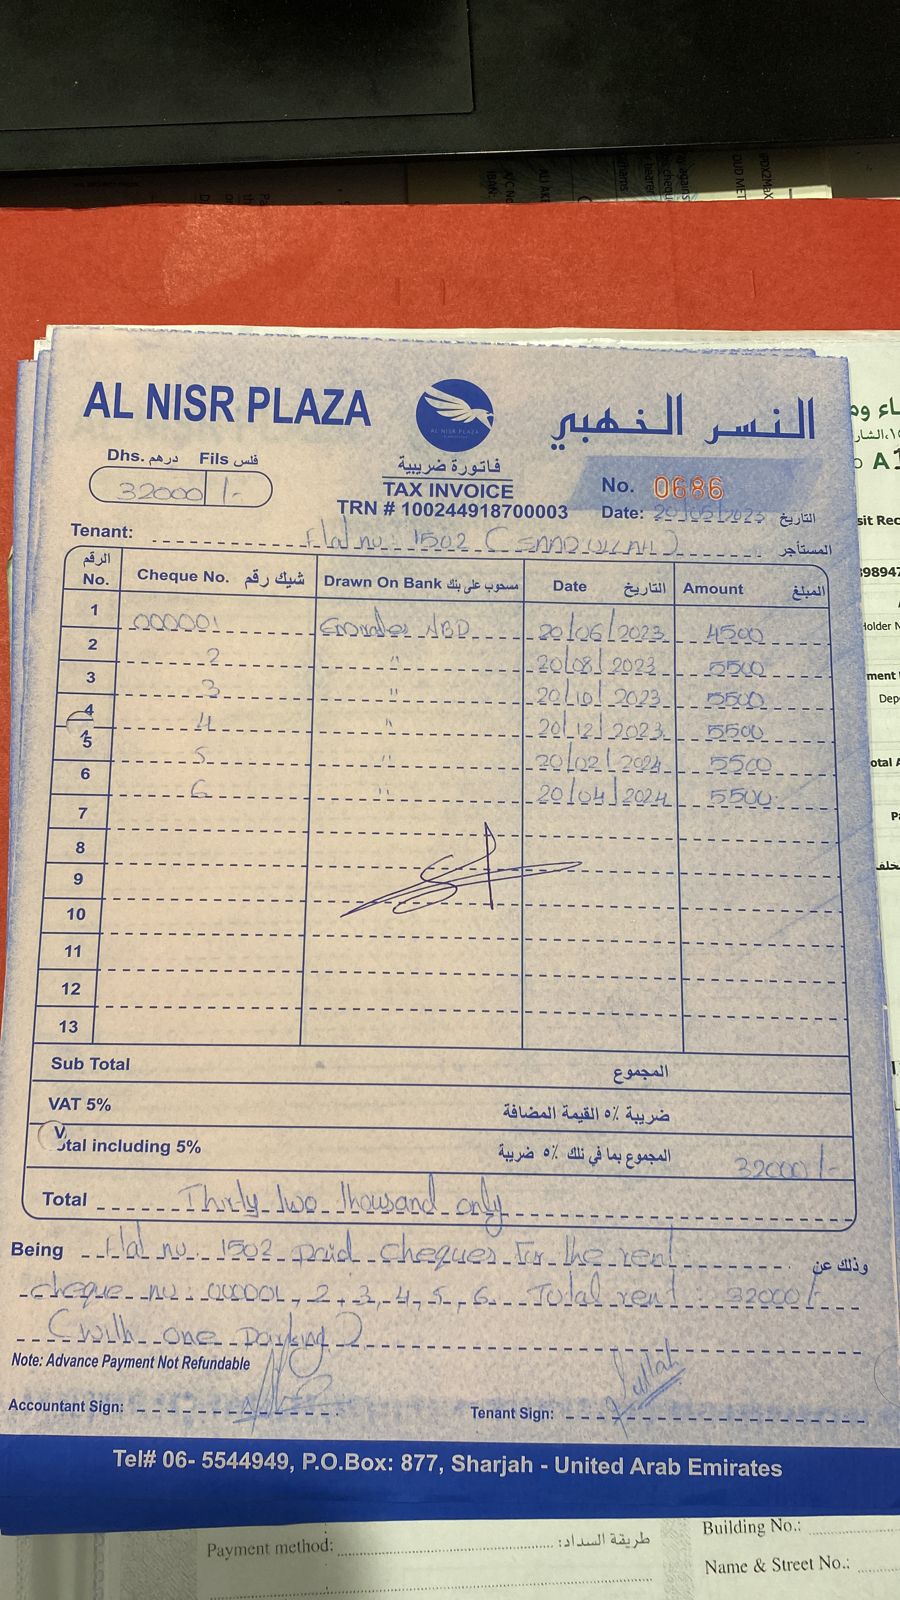 AL NISR PLAZA
النسر الذهبي
AL NISR PLAZA
Dhs. درهم Fils فلس
32000 /-
فاتورة ضريبية
TAX INVOICE
TRN # 100244918700003
No. 0686
Date: 20/05/2023 التاريخ
Tenant: Flat no: 1502 (SAAD ULLAH) المستأجر
الرقم No. Cheque No. شيك رقم Drawn On Bank مسحوب على بنك Date التاريخ Amount المبلغ
1 000001 Emirates NBD 20/06/2023 4500
2 2 " 20/08/2023 5500
3 3 " 20/10/2023 5500
4 4 " 20/12/2023 5500
5 5 " 20/02/2024 5500
6 6 " 20/04/2024 5500
7
8
9
10
11
12
13
Sub Total المجموع
VAT 5% ضريبة ٥٪ القيمة المضافة
Total including 5% المجموع بما في ذلك ٥٪ ضريبة 32000/-
Total Thirty two thousand only
Being Flat no. 1502 paid cheques for the rent وذلك عن
cheque no: 000001, 2, 3, 4, 5, 6. Total rent: 32000/-
(with one parking)
Note: Advance Payment Not Refundable
Accountant Sign: Tenant Sign:
Tel# 06- 5544949, P.O.Box: 877, Sharjah - United Arab Emirates
Payment method: طريقة السداد:
Building No.:
Name & Street No.: